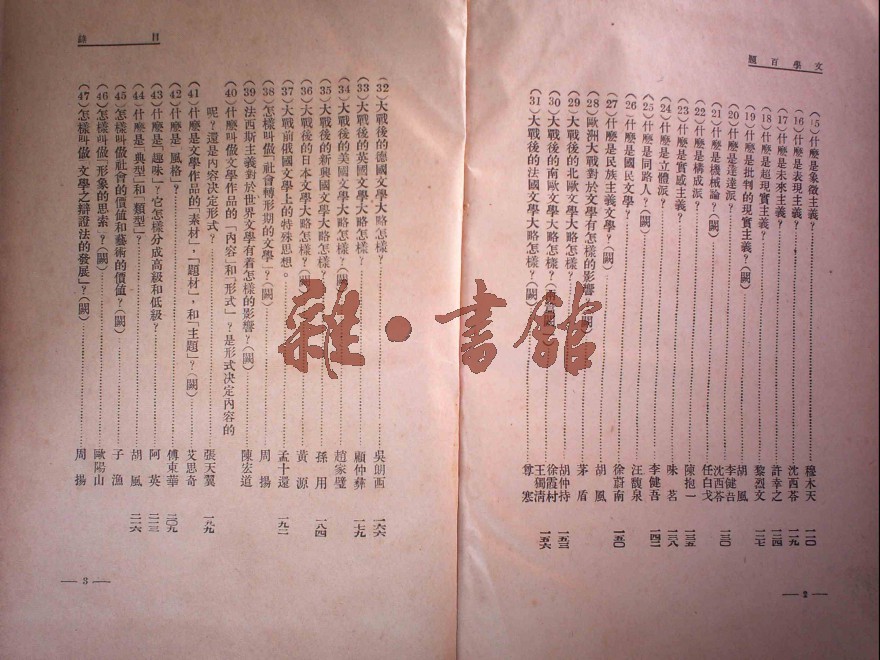 文學百題
(15) 什麼是象徵主義？
(16) 什麼是表現主義？
(17) 什麼是未來主義？
(18) 什麼是超現實主義？
(19) 什麼是批判的現實主義？(闕)
(20) 什麼是達達派？
(21) 什麼是機械論？(闕)
(22) 什麼是構成派？
(23) 什麼是實感主義？
(24) 什麼是立體派？
(25) 什麼是同路人？(闕)
(26) 什麼是國民文學？
(27) 什麼是民族主義文學？(闕)
(28) 歐洲大戰對於文學有怎樣的影響？(闕)
(29) 大戰後的北歐文學大略怎樣？
(30) 大戰後的南歐文學大略怎樣？
(31) 大戰後的法國文學大略怎樣？(闕)
穆木天
沈西苓
許幸之
黎烈文
胡風
李健吾
沈西苓
任白戈
陳抱一
味茗
李健吾
汪馥泉
徐蔚南
胡風
茅盾
胡仲持
徐霞村
王獨清
尊寒
一一〇
一一九
一二四
一二七
一三〇
一三五
一三八
一四二
一五〇
一五三
一五六
— 2 —
目錄
(32) 大戰後的德國文學大略怎樣？
(33) 大戰後的英國文學大略怎樣？
(34) 大戰後的美國文學大略怎樣？(闕)
(35) 大戰後的新興國文學大略怎樣？
(36) 大戰後的日本文學大略怎樣？(闕)
(37) 大戰前俄國文學上的特殊思想。
(38) 怎樣叫做「社會轉形期的文學」？(闕)
(39) 法西斯主義對於世界文學有着怎樣的影響？(闕)
(40) 什麼叫做文學作品的「內容」和「形式」？是形式決定內容的
呢？還是內容決定形式？
(41) 什麼是文學作品的「素材」，「題材」，和「主題」？(闕)
(42) 什麼是「風格」？
(43) 什麼是「趣味」？它怎樣分成高級和低級？
(44) 什麼是「典型」和「類型」？
(45) 怎樣叫做社會的價值和藝術的價值？(闕)
(46) 怎樣叫做「形象的思索」？(闕)
(47) 怎樣叫做「文學之辯證法的發展」？(闕)
吳朗西
顧仲彝
趙家璧
孫用
黃源
孟十還
周揚
陳宏道
張天翼
艾思奇
傅東華
阿英
胡風
子漁
歐陽山
周揚
一六六
一七九
一八四
一九二
一九九
二〇九
二一三
二一六
— 3 —
雜·書館